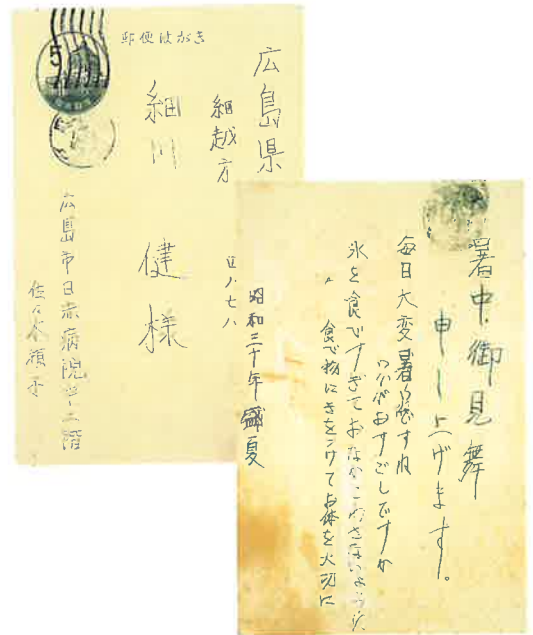 郵便はがき
5
広島県
細越方
細川 健様
広島市日赤病院
暑中御見舞
申し上げます。
毎日大変暑いですね
いかがおすごしですか
氷を食べすぎておなかこわさないように
食べ物にきをつけてお体を大切に
昭和三十年盛夏